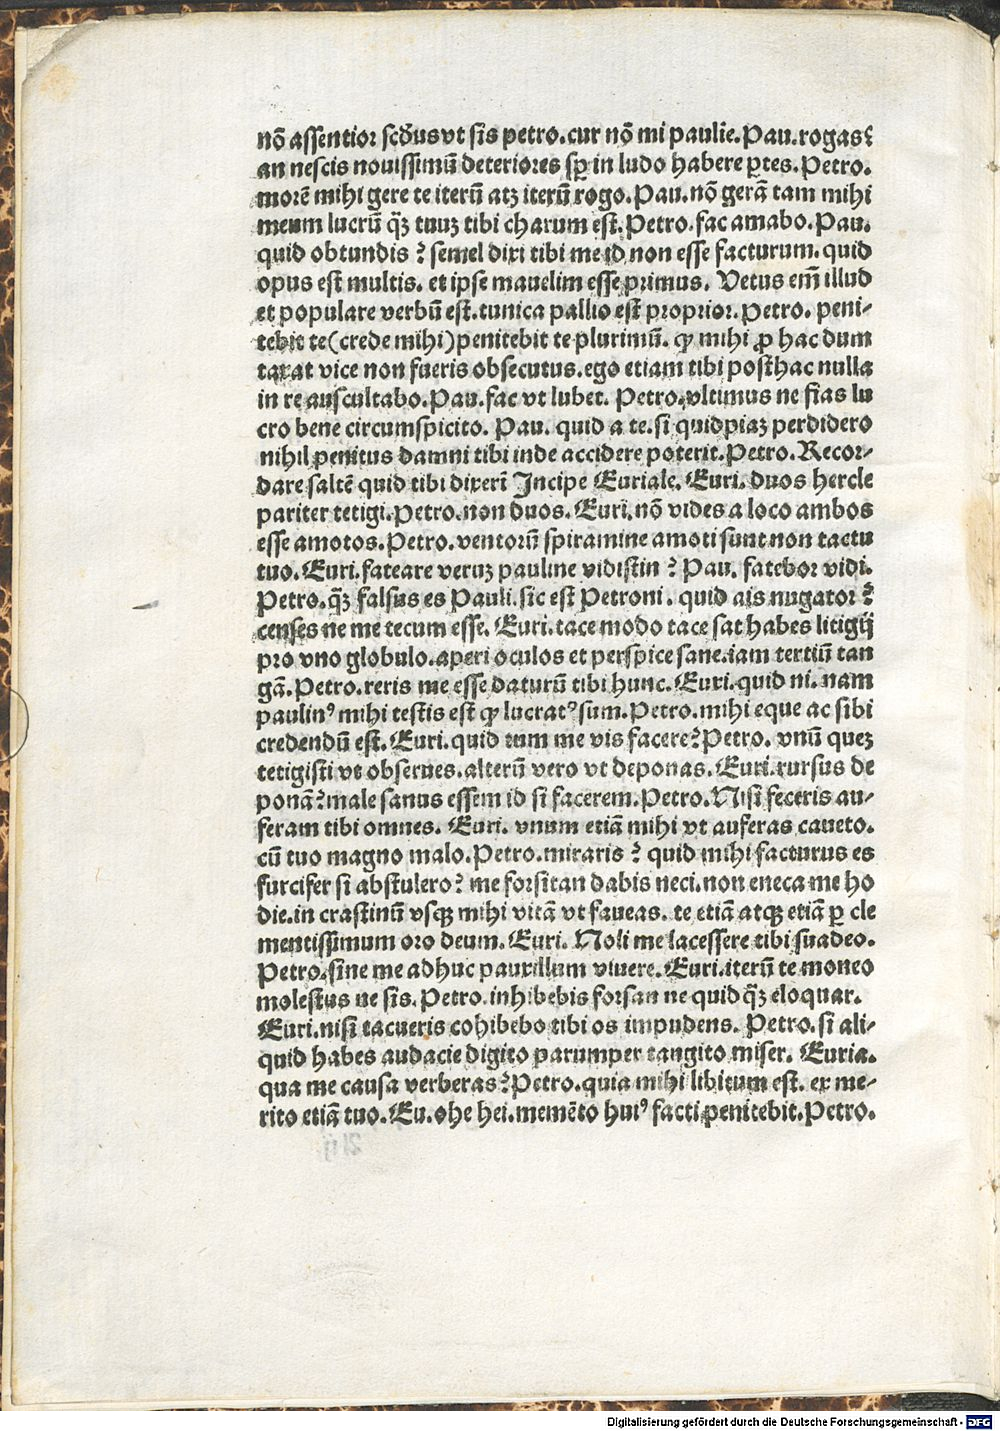 nō assentior scďus vt sis petro. cur nō mi paulie. Pau. rogas?
an nescis nouissimū deteriores sꝑ in ludo habere ꝑtes. Petro.
morē mihi gere te iterū atꝫ iterū rogo. Pau. nō gerā tam mihi
meum lucrū q̈ꝫ tuuꝫ tibi charum est. Petro. fac amabo. Pau.
quid obtundis ? semel dixi tibi me id non esse facturum. quid
opus est multis. et ipse mauelim esse primus. Vetus em̄ illud
et populare verbū est. tunica pallio est proprior. Petro. peni-
tebit te (crede mihi) penitebit te plurimū. ꝙ mihi ꝓ hac dum
taxat vice non fueris obsecutus. ego etiam tibi posthac nulla
in re auscultabo. Pau. fac vt lubet. Petro. vltimus ne fias lu
cro bene circumspicito. Pau. quid a te. si quidpiaꝫ perdidero
nihil penitus damni tibi inde accidere poterit. Petro. Recor-
dare saltē quid tibi dixerī Incipe Euriale. Euri. duos hercle
pariter tetigi. Petro. non duos. Euri. nō vides a loco ambos
esse amotos. Petro. ventorū spiramine amoti sunt non tactu
tuo. Euri. fateare veruꝫ pauline vidistin ? Pau. fatebor vidi.
Petro. q̈ꝫ falsus es Pauli. sic est Petroni. quid ais nugator ?
censes ne me tecum esse. Euri. tace modo tace sat habes litigij
pro vno globulo. aperi oculos et perspice sane. iam tertiū tan
gā. Petro. reris me esse daturū tibi hunc. Euri. quid ni. nam
paulinꝰ mihi testis est ꝙ lucratꝰ sum. Petro. mihi eque ac sibi
credendū est. Euri. quid tum me vis facere? Petro. vnū queꝫ
tetigisti vt obserues. alterū vero vt deponas. Euri. rursus de
ponā? male sanus essem id si facerem. Petro. Nisi feceris au-
feram tibi omnes. Euri. vnum etiā mihi vt auferas caueto.
cū tuo magno malo. Petro. miraris ? quid mihi facturus es
furcifer si abstulero? me forsitan dabis neci. non eneca me ho
die. in crastinū vsqꝫ mihi vitā vt faueas. te etiā atqꝫ etiā ꝑ cle
mentissimum oro deum. Euri. Noli me lacessere tibi suadeo.
Petro. sine me adhuc pauxillum viuere. Euri. iterū te moneo
molestus ne sis. Petro. inhibebis forsan ne quid q̈ꝫ eloquar.
Euri. nisi tacueris cohibebo tibi os impudens. Petro. si ali-
quid habes audacie digito parumper tangito miser. Euria.
qua me causa verberas? Petro. quia mihi libitum est. ex me-
rito etiā tuo. Eu. ohe hei. memēto huiꝰ facti penitebit. Petro.
Digitalisierung gefördert durch die Deutsche Forschungsgemeinschaft - DFG